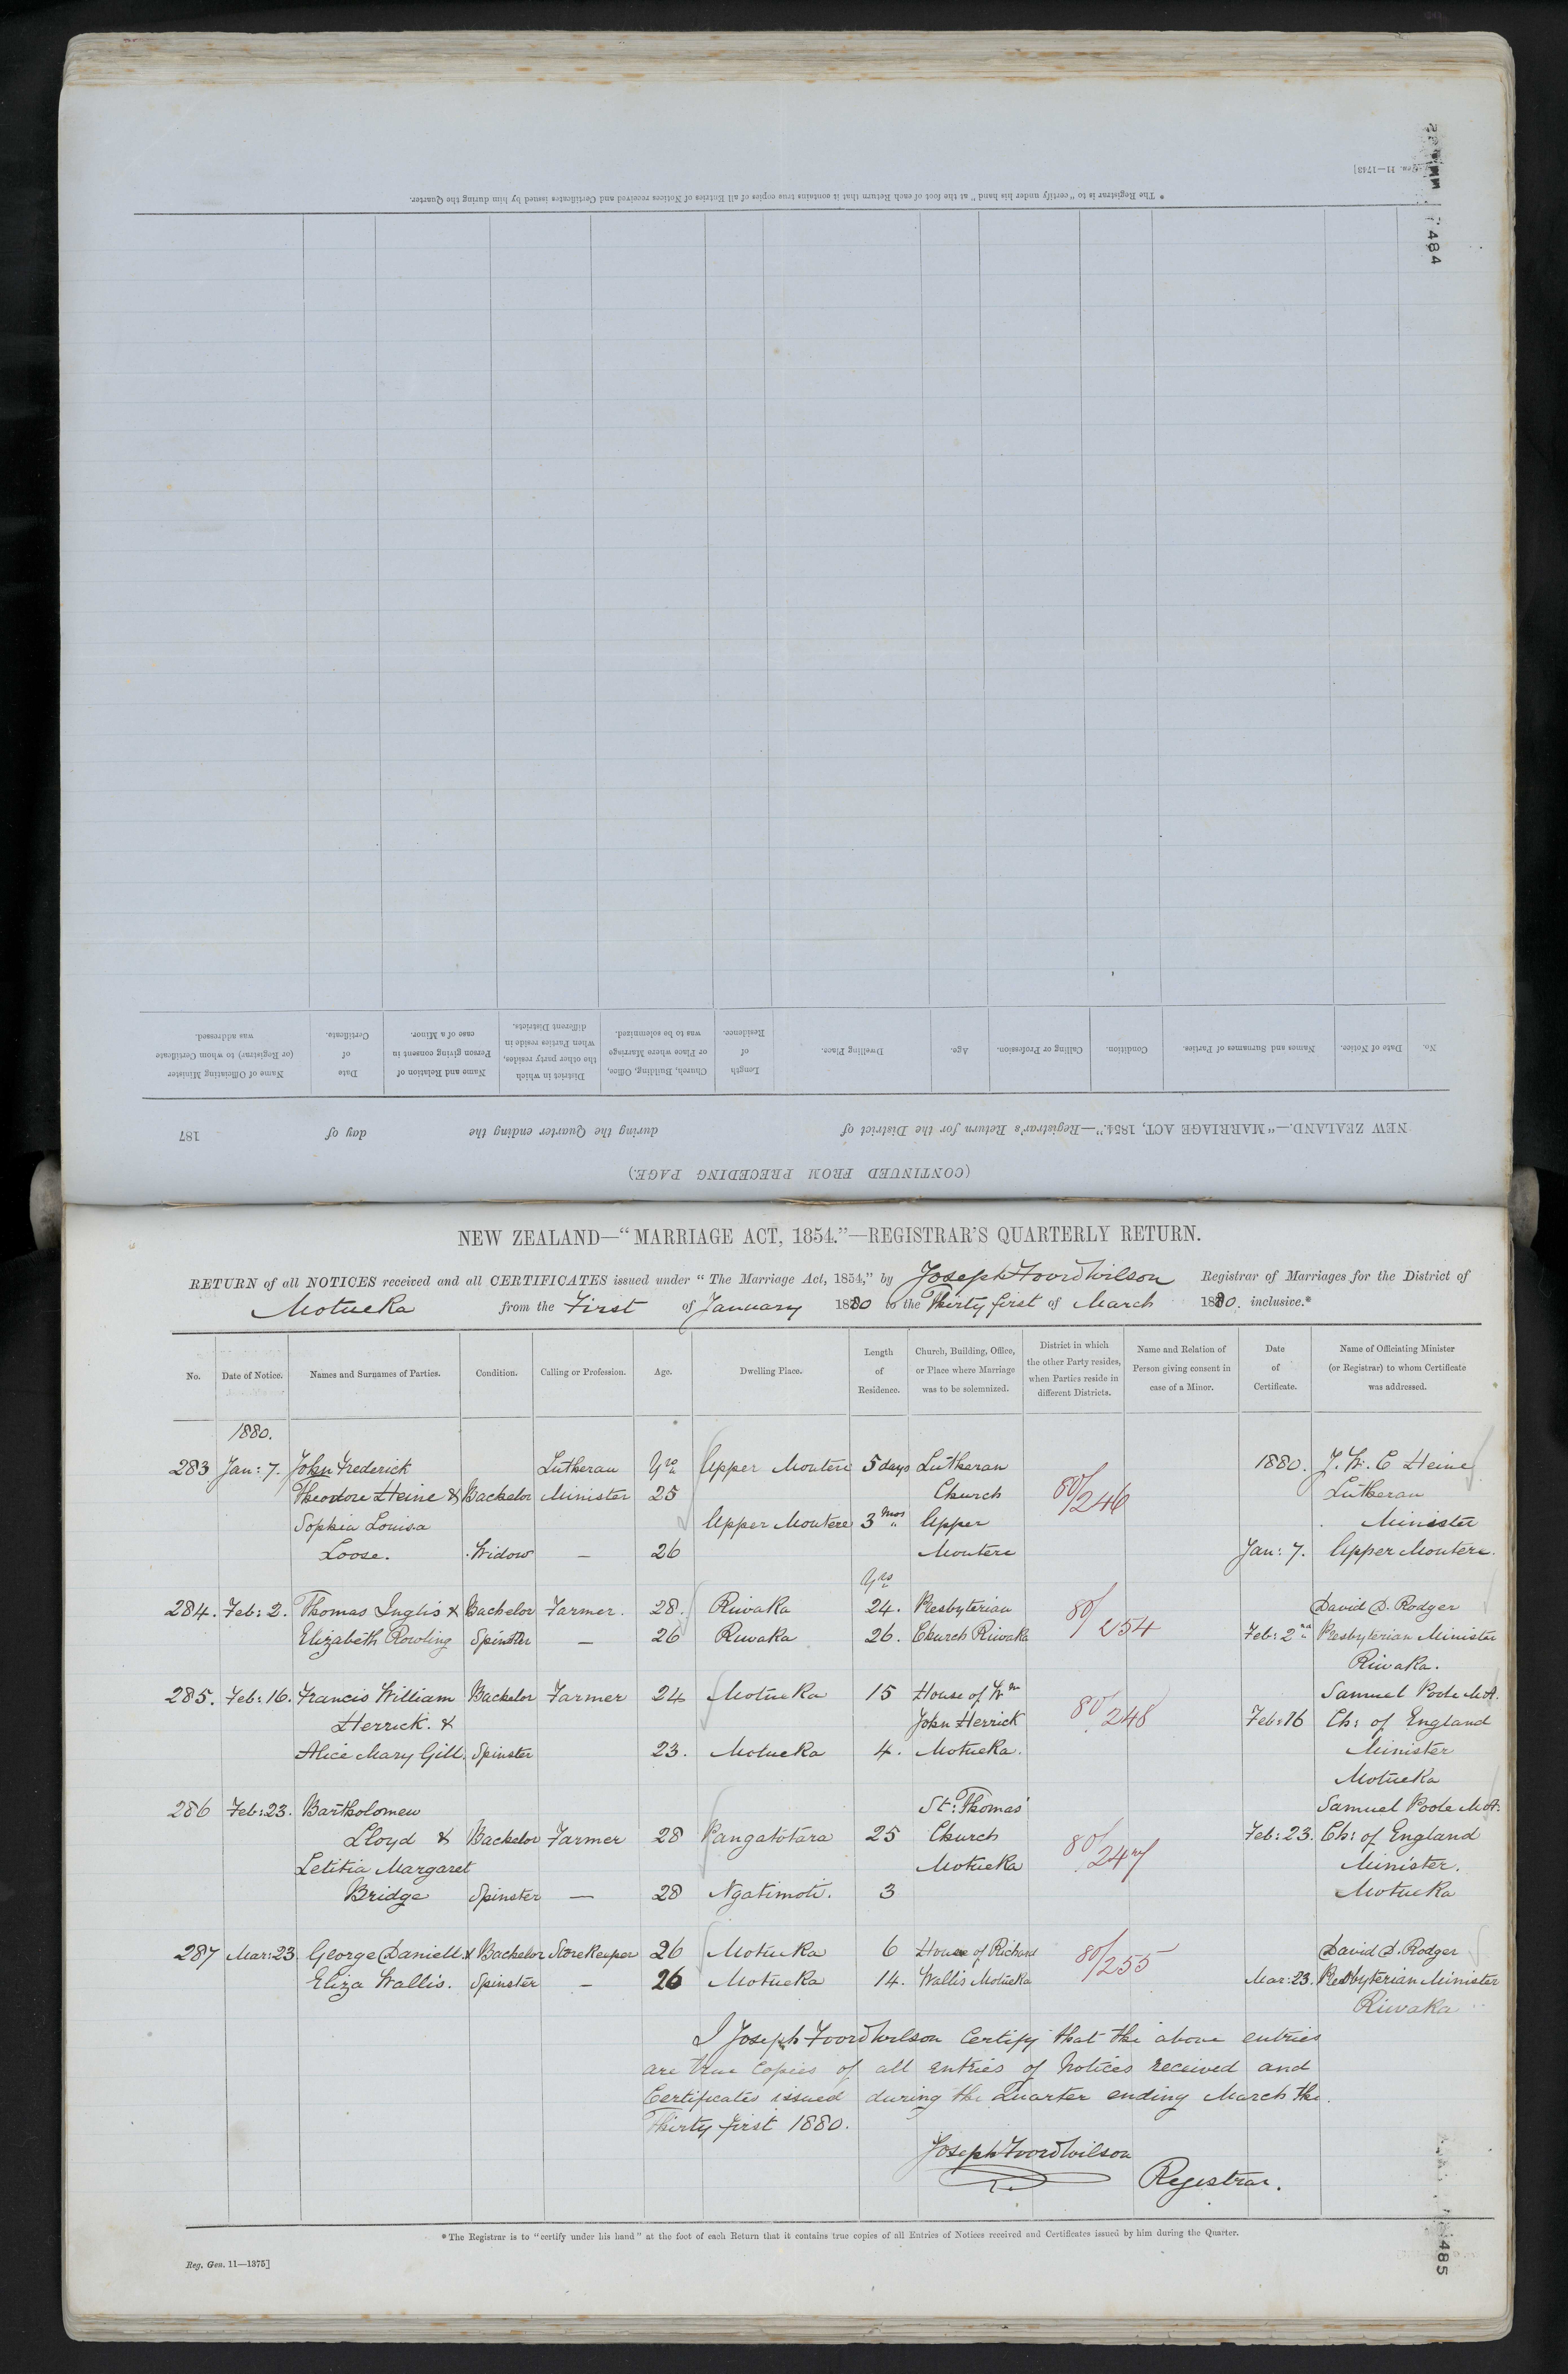 Reg. Gen. 11—1743]
484
* The Registrar is to "certify under his hand" at the foot of each Return that it contains true copies of all Entries of Notices received and Certificates issued by him during the Quarter.
(CONTINUED FROM PRECEDING PAGE.)
NEW ZEALAND.—"MARRIAGE ACT, 1854."—Registrar's Return for the District of during the Quarter ending the day of 187
No. Date of Notice. Names and Surnames of Parties. Condition. Calling or Profession. Age. Dwelling Place. Length of Residence. Church, Building, Office, or Place where Marriage was to be solemnized. District in which the other party resides, when Parties reside in different Districts. Name and Relation of Person giving consent in case of a Minor. Date of Certificate. Name of Officiating Minister (or Registrar) to whom Certificate was addressed.
NEW ZEALAND—"MARRIAGE ACT, 1854."—REGISTRAR'S QUARTERLY RETURN.
RETURN of all NOTICES received and all CERTIFICATES issued under "The Marriage Act, 1854," by Joseph Foord Wilson Registrar of Marriages for the District of
Motueka from the First of January 1880 to the Thirty first of March 1880. inclusive.*
No. Date of Notice. Names and Surnames of Parties. Condition. Calling or Profession. Age. Dwelling Place. Length of Residence. Church, Building, Office, or Place where Marriage was to be solemnized. District in which the other Party resides, when Parties reside in different Districts. Name and Relation of Person giving consent in case of a Minor. Date of Certificate. Name of Officiating Minister (or Registrar) to whom Certificate was addressed.
1880.
283 Jan: 7. John Frederick Lutheran Yrs Upper Moutere 5 days Lutheran 1880. J. W. C Heine
Theodore Heine & Bachelor Minister 25 Church 80/246 Lutheran
Sophia Louisa Upper Moutere 3 mos Upper Minister
Loose. Widow — 26 Moutere Jan: 7. Upper Moutere.
Yrs
284. Feb: 2. Thomas Inglis & Bachelor Farmer. 28. Riwaka 24. Presbyterian 80/254 David D. Rodger
Elizabeth Rowling Spinster — 26 Riwaka 26. Church Riwaka Feb: 2nd Presbyterian Minister
Riwaka.
285. Feb: 16. Francis William Bachelor Farmer 24 Motueka 15 House of Wm Samuel Poole M.A.
Herrick. & John Herrick 80/248 Feb: 16 Ch: of England
Alice Mary Gill. Spinster 23. Motueka 4. Motueka. Minister
Motueka
286 Feb: 23. Bartholomew St: Thomas' Samuel Poole M.A.
Lloyd & Bachelor Farmer 28 Pangatotara 25 Church 80/247 Feb: 23. Ch: of England
Letitia Margaret Motueka Minister.
Bridge Spinster — 28 Ngatimoti. 3 Motueka
287 Mar: 23. George Daniell & Bachelor Storekeeper 26 Motueka 6 House of Richard 80/255 David D. Rodger
Eliza Wallis. Spinster — 26 Motueka 14. Wallis Motueka Mar: 23. Presbyterian Minister
Riwaka
I Joseph Foord Wilson Certify that the above entries
are true copies of all entries of Notices received and
Certificates issued during the Quarter ending March the
Thirty first 1880.
Joseph Foord Wilson
Registrar.
* The Registrar is to "certify under his hand" at the foot of each Return that it contains true copies of all Entries of Notices received and Certificates issued by him during the Quarter.
Reg. Gen. 11—1375]
485